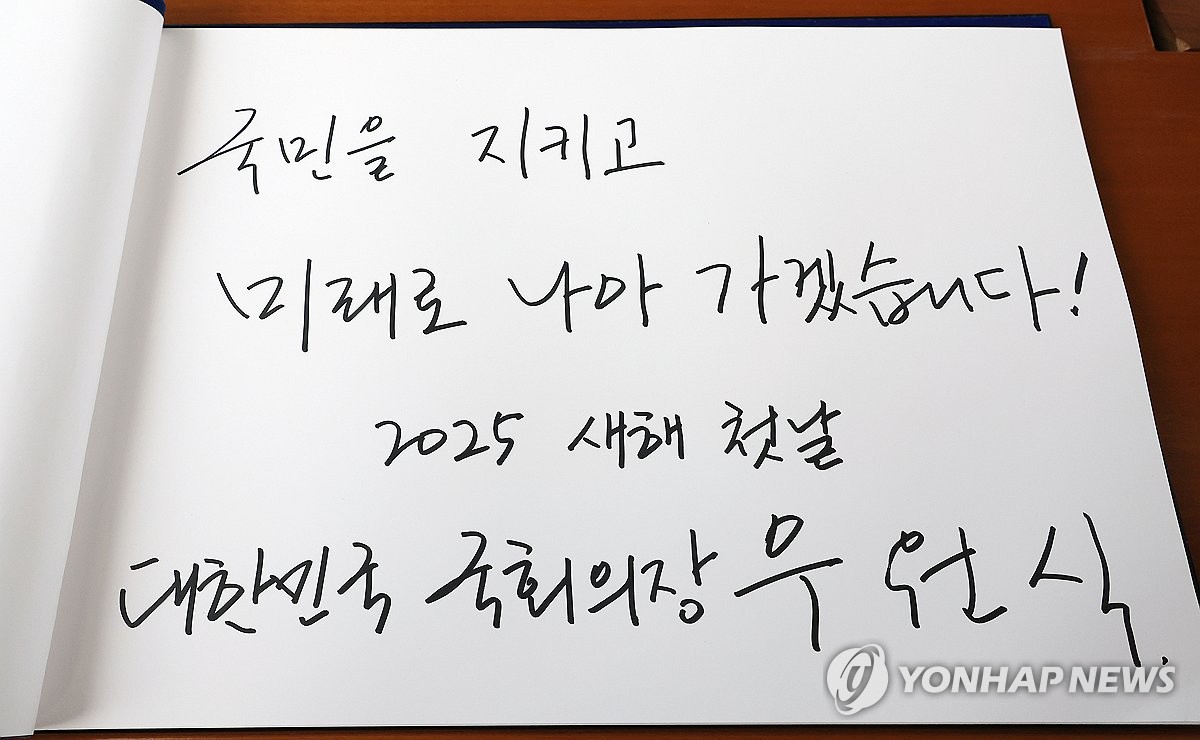 국민을 지키고
미래로 나아 가겠습니다!
2025 새해 첫날
대한민국 국회의장 우 원 식.
YONHAP NEWS